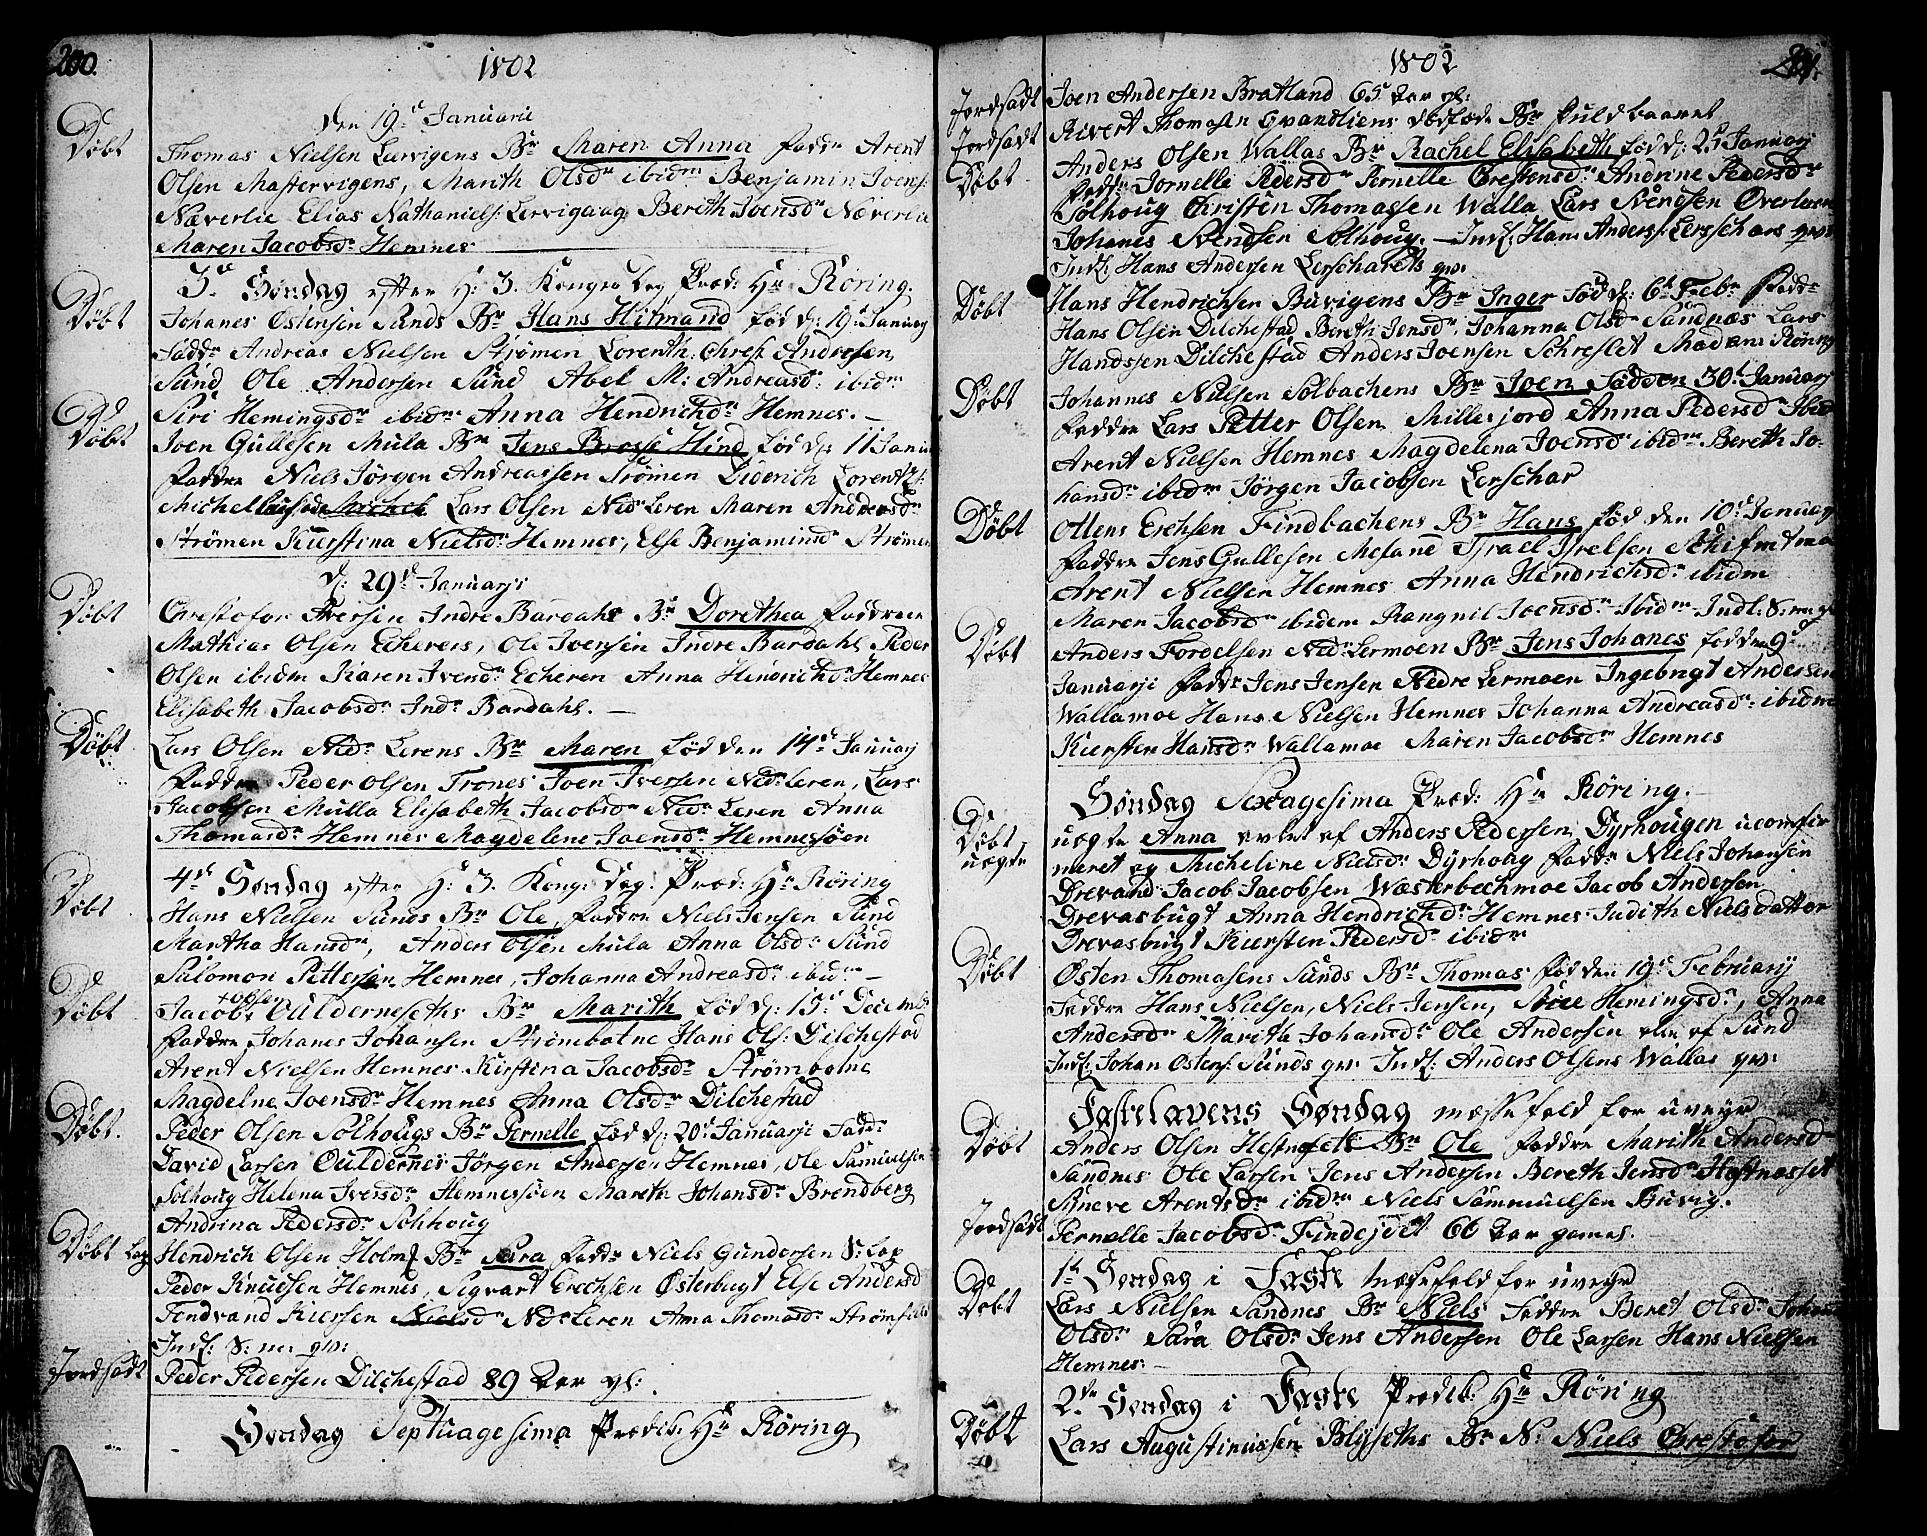 200.
1802
Den 19d Januarii
Døbt
Thomas Nielsen Larvigens Bn Maren Anna fadd Arent
Olsen Mastervigens, Marith Olsdr ibidm Benjamin Joens:
Næverlie Elias Nathaniels: Lervigaag Berith Joensdr Næverlie
Maren Jacobsdr Hemnes
3d Søndag efter H: 3. Konger Dag Præd: Hr Röring.
Døbt
Johanes Østensen Sunds Bn Hans Hitmand fød d: 19d Januarj
Faddr Andreas Nielsen Strømen Lorenth: Chrest Andresen
Sund Ole Andersen Sund Abel M: Andreasd: ibidm
Siri Hemingsdr ibidm Anna Hendrichdr Hemnes. —
Døbt
Joen Gullesen Mula Bn Jens Brosse Hind fød d: 11 Janu
Faddre Niels Jörgen Andreassen Strömen Diderich Lorentz:
Michel Lars Olsen Nidr Leren Maren Anddreasdr
Strömen Kierstina Nielsdr Hemnes, Else Benjaminsdr Strömen
d: 29d Januarji
Døbt
Crestofor Iversen Indre Bardahl Bn Dorethea Faddrene
Mathias Olsen Echerens, Ole Iversen Indre Bardahl Peder
Olsen ibidm Karen Iversdr Echeren Anna Hindrichdr Hemnes
Elisabeth Jacobsdr Indr Bardahl. —
Døbt
Lars Olsen Nidr Lerens Bn Maren fød den 14d Januarj
Faddre Peder Olsen Trones Joen Iversen Nidr Leren, Lars
Jacobsen Mulla Elisabeth Jacobsdr Nidr Leren Anna
Thomasdr Hemnes Magdelene Joensdr Hemnessöen
4d Søndag efter H: 3. Kong: Dag: Præd: Hr Röring
Døbt
Hans Nielsen Sunds Bn Ole, faddre Niels Jensen Sund
Martha Hansdr, Anders Olsen Mula Anna Olsdr Sund
Salomon Pettersen Hemnes, Johanna Andreasdr ibidm —
Døbt
Jacobs Ouldernesets Bn Marith fød d: 13d Decembr
Faddre Johanes Johansen Strömbotne Hans Ols: Dilchestad
Arent Nielsen Hemnes Kirstina Jacobsdr Strömbotne
Magdelne Joensdr Hemnes Anna Olsdr Dilchestad
Døbt.
Peder Olsen Solhougs Bn Pernelle fød d: 20d Januarji Fadd:
David Larsen Ouldernes Jörgen Andersen Hemnes, Ole Samuelsen
Solhoug Helena Iversdr Hemnessöen Marith Johansdr Brendberg
Andrina Pedersdr Solhoug
Døbt Lap
Hendrich Olsen Holms Bn Sara Faddr Niels Gundersen S: Lap
Peder Knudsen Hemnes, Sigvart Erechsen Østerbugt Else Andersd
Fendvand Kiersten Nielsdr Nidr Leren Anna Thomasdr Strömsals
Indl: S: m: qv:
Jordsadt
Peder Pedersen Dilchestad 89 Aar gl:
Søndag Septuagesima Prædik: Hr Röring
1802
201.
Jordsadt
Joen Andersen Bratland 65 Aar gl:
Jordsadt
Rivert Thomasen Gvandliens dødfæde Bn fuldbaaret
Døbt
Anders Olsen Wallas Bn Rachel Elisabeth fød d: 25d Januarj
Faddr Jornelle Pedersdr Pernelle Chrestensdr Andrine Pedersdr
Solhoug Christen Thomassen Walla Lars Svendsen Overleer
Johanes Svendsen Solhoug. — Indl: Hans Anders: Lerschars qvr
Indl: Hans Andersen Lerscharets qvr
Døbt
Hans Hendrichsen Buvigens Bn Inger fød d: 6d Febr Faddr
Hans Olsen Dilchestad Birith Jensdr, Johanna Olsdr Sandnæs Lars
Handssen Dilchestad Anders Joensen Schreslet Madam Röring
Døbt
Johannes Nielsen Solbachens Bn Joen Fød den 30d Januarj
Faddre Lars Petter Olsen Millerjord Anna Pedersdr Ibid
Arent Nielsen Hemnes Magdelena Joensdr ibidm Bereth Jo-
hansdr ibidm Jörgen Jacobsen Lerschar
Døbt
Ottens Erchsen Findbachens Bn Hans fød den 10d Januarj
Faddre Jens Gullesen Mesand Israel Isrelsen Schifmtmo
Arent Nielsen Hemnes Anna Hendrichsdr ibidm
Maren Jacobsdr ibidem Rangnil Joensdr Ibidm Indl: S: m: qv
Døbt
Anders Fordelsen Nidr Lermoen Bn Jens Johanes fød den 9d
Januarji Faddr Jens Jensen Nedre Lermoen Ingebrigt Andersen
Wallamoe Hans Nielsen Hemnes Johanna Andreasdr ibidm
Kiersten Hansdr Wallamoe Maren Jacobsdr Hemnes
Søndag Sexagesima Præd: Hr Röring. —
Døbt
uegte
uægte Anna avlet af Anders Pedersen Dyrhougen uconfir
meret og Micheline Nielsdr Dyrhoug Faddr Niels Johansen
Drevand Jacob Jacobsen Wæsterbechmoe Jacob Andersen
Drevasbugt Anna Hendrichdr Hemnes Judith Nielsdatter
Drevasbugt Kiersten Pedersdr ibidm
Døbt
Østen Thomasens Sunds Bn Thomas fød den 19d Februarij
Faddre Hans Nielsen, Niels Jensen, Siri Hemingsdr, Anna
Andersdr Maritha Johansdr Ole Andersen alle af Sund
Indl: Johan Østens: Sunds qvr Indl: Anders Olsens Wallas qvr:
Fastelavens Søndag messefald for uveyr
Døbt
Anders Olsen Hestnesets Bn Ole Faddre Marith Andersdr
Sandnes Ole Larsen Jens Andersen Bereth Jensdr Hestnesset
Sineve Arentsdr ibidm Niels Sammuelsen Buvig.
Jordsadt
Pernelle Jacobsdr Findejdet 66 Aar games. —
1st Søndag i Faste Messefald for uveyr
Døbt
Lars Nielsen Sandnes Bn Niels Faddre Beret Olsdr Johan
Olsdr Sara Olsdr Jens Andersen Ole Larsen Hans Nielsen
Hemnes: —
2dn Søndag i Faste Prædik: Hr Röring
Døbt
Lars Augustinussen Blyseths Bn N: Niels Chrestofor